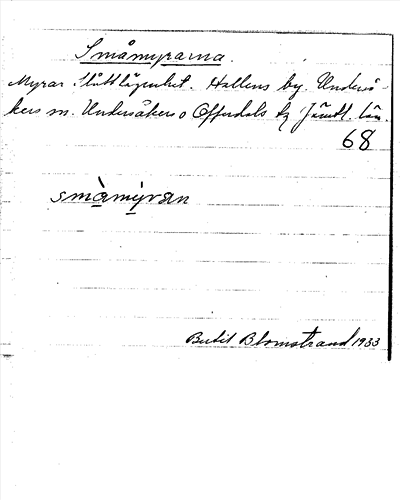 Småmyrarna.
Myrar. Slåttlägenhet. Hallens by. Underså-
kers sn. Undersåkers o Offerdals tg Jämtl. län.
68
småmýran
Bertil Blomstrand 1933